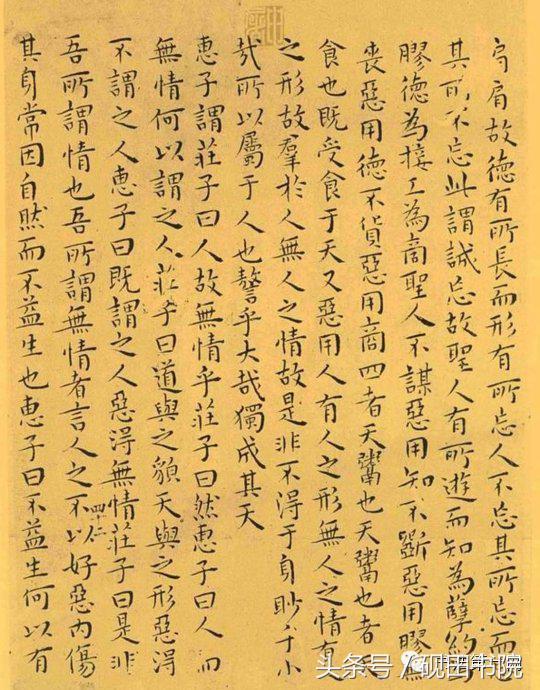 肩肩故德有所長而形有所忘人不忘其所忘而
其所不忘此謂誠忘故聖人有所遊而知為孽約為
膠德為接工為商聖人不謀惡用知不斵惡用膠無
喪惡用德不貨惡用商四者天鬻也天鬻也者天
食也既受食于天又惡用人有人之形無人之情有
之形故羣於人無人之情故是非不得于身眇乎小
哉所以屬于人也謷乎大哉獨成其天
惠子謂莊子曰人故無情乎莊子曰然惠子曰人而
無情何以謂之人莊子曰道與之貌天與之形惡得
不謂之人惠子曰既謂之人惡得無情莊子曰是非
吾所謂情也吾所謂無情者言人之不以好惡內傷
其身常因自然而不益生也惠子曰不益生何以有
头条号/砚田书院